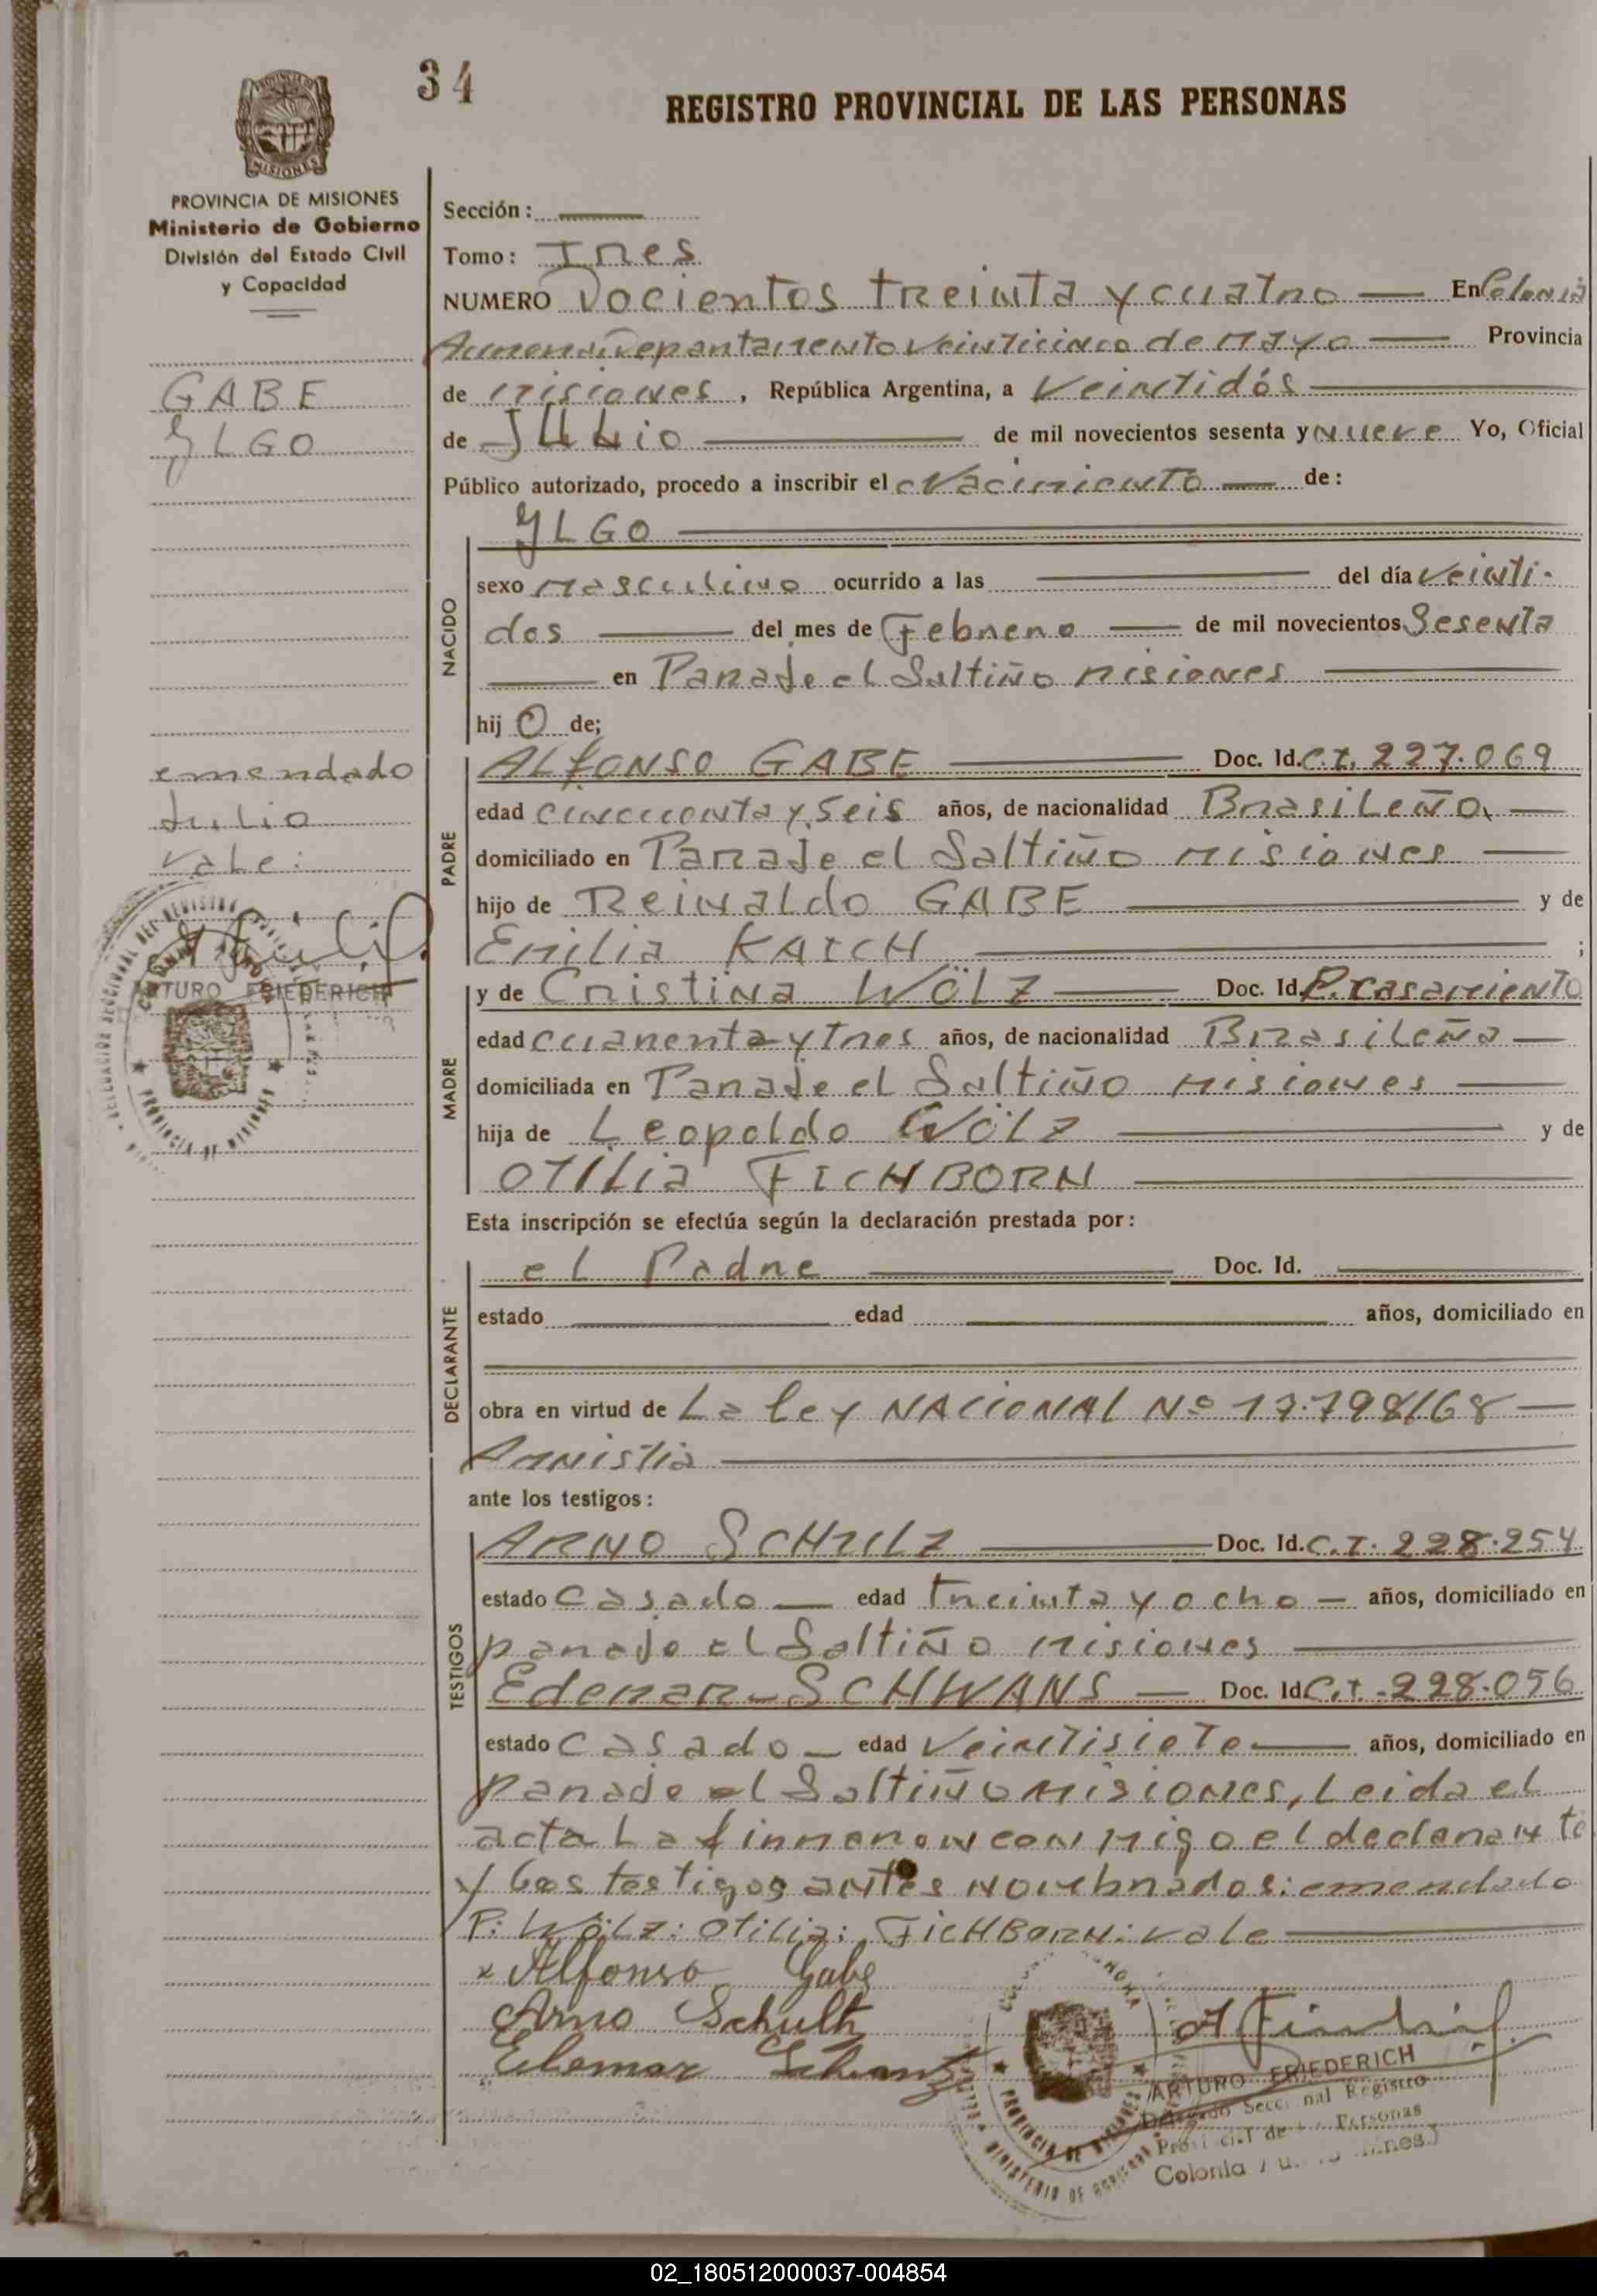 34
REGISTRO PROVINCIAL DE LAS PERSONAS
MISIONES
PROVINCIA DE MISIONES
Ministerio de Gobierno
División del Estado Civil
y Capacidad
GABE
YLGO
emendado
Julio
vale:
ARTURO FRIEDERICH
PROVINCIA DE MISIONES
Sección:
Tomo: Tres
NUMERO Docientos treinta y cuatro En Colonia
Departamento veinticinco de mayo Provincia
de misiones, República Argentina, a Veintidós
de Julio de mil novecientos sesenta y nueve Yo, Oficial
Público autorizado, procedo a inscribir el Nacimiento de:
YLGO
NACIDO
sexo masculino ocurrido a las del día veinti-
dos del mes de Febrero de mil novecientos Sesenta
en Paraje el Saltiño misiones
hij o de;
PADRE
ALfONSO GABE Doc. Id. C.I. 227.069
edad cincuenta y seis años, de nacionalidad Brasileño
domiciliado en Paraje el Saltiño misiones
hijo de Reinaldo GABE y de
Emilia KAICH ;
MADRE
y de Cristina WÖLZ Doc. Id. P. casamiento
edad cuarenta y tres años, de nacionalidad Brasileña
domiciliada en Paraje el Saltiño misiones
hija de Leopoldo WÖLZ y de
OTILia FICHBORN
Esta inscripción se efectúa según la declaración prestada por:
DECLARANTE
el Padre Doc. Id.
estado edad años, domiciliado en
obra en virtud de La ley NACIONAL Nº 17.798/68
Amnistia
ante los testigos:
TESTIGOS
ARNO SCHULZ Doc. Id. C.I. 228.254
estado casado edad treinta y ocho años, domiciliado en
paraje el Saltiño misiones
Edemar SCHWANS Doc. Id. C.I. 228.056
estado casado edad Veintisiete años, domiciliado en
paraje el Saltiño misiones, Leida el
acta La firmaron con migo el declarante
y los testigos antes nombrados: emendado
P: WÖLZ: Otilia: FICHBORN: vale
x Alfonso Gabe
Arno Schultz
Edemar Schwanz
ARTURO FRIEDERICH
Registro
Personas
Colonia
PROVINCIA DE MISIONES
02_180512000037-004854